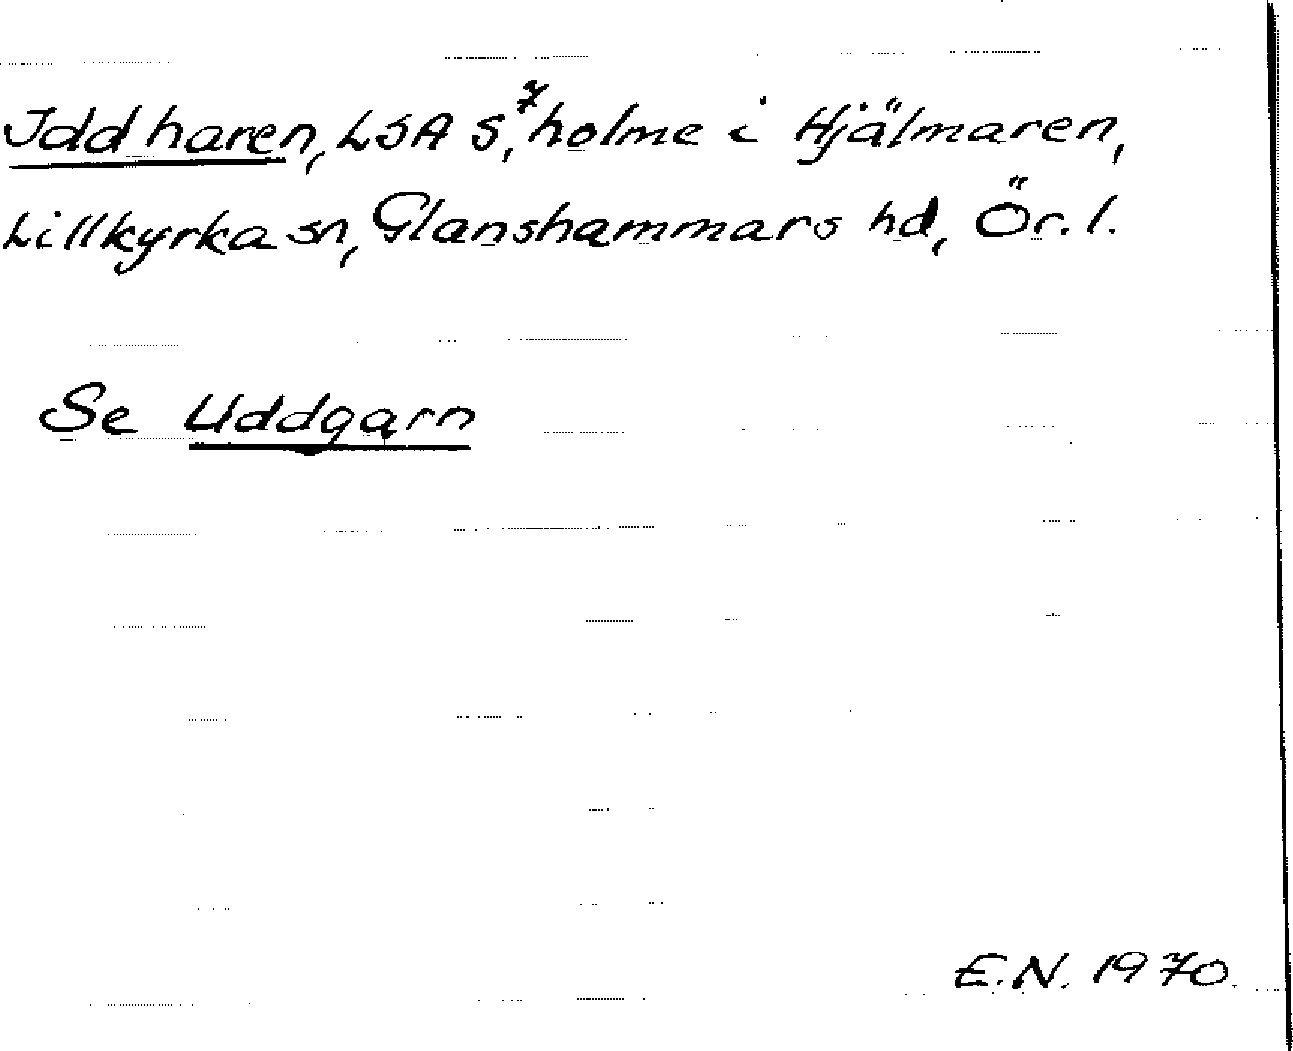 Idd haren, LSA S,⁷ holme i Hjälmaren,
Lillkyrka sn, Glanshammars hd, Ör. l.
Se Uddgarn
E.N. 1970